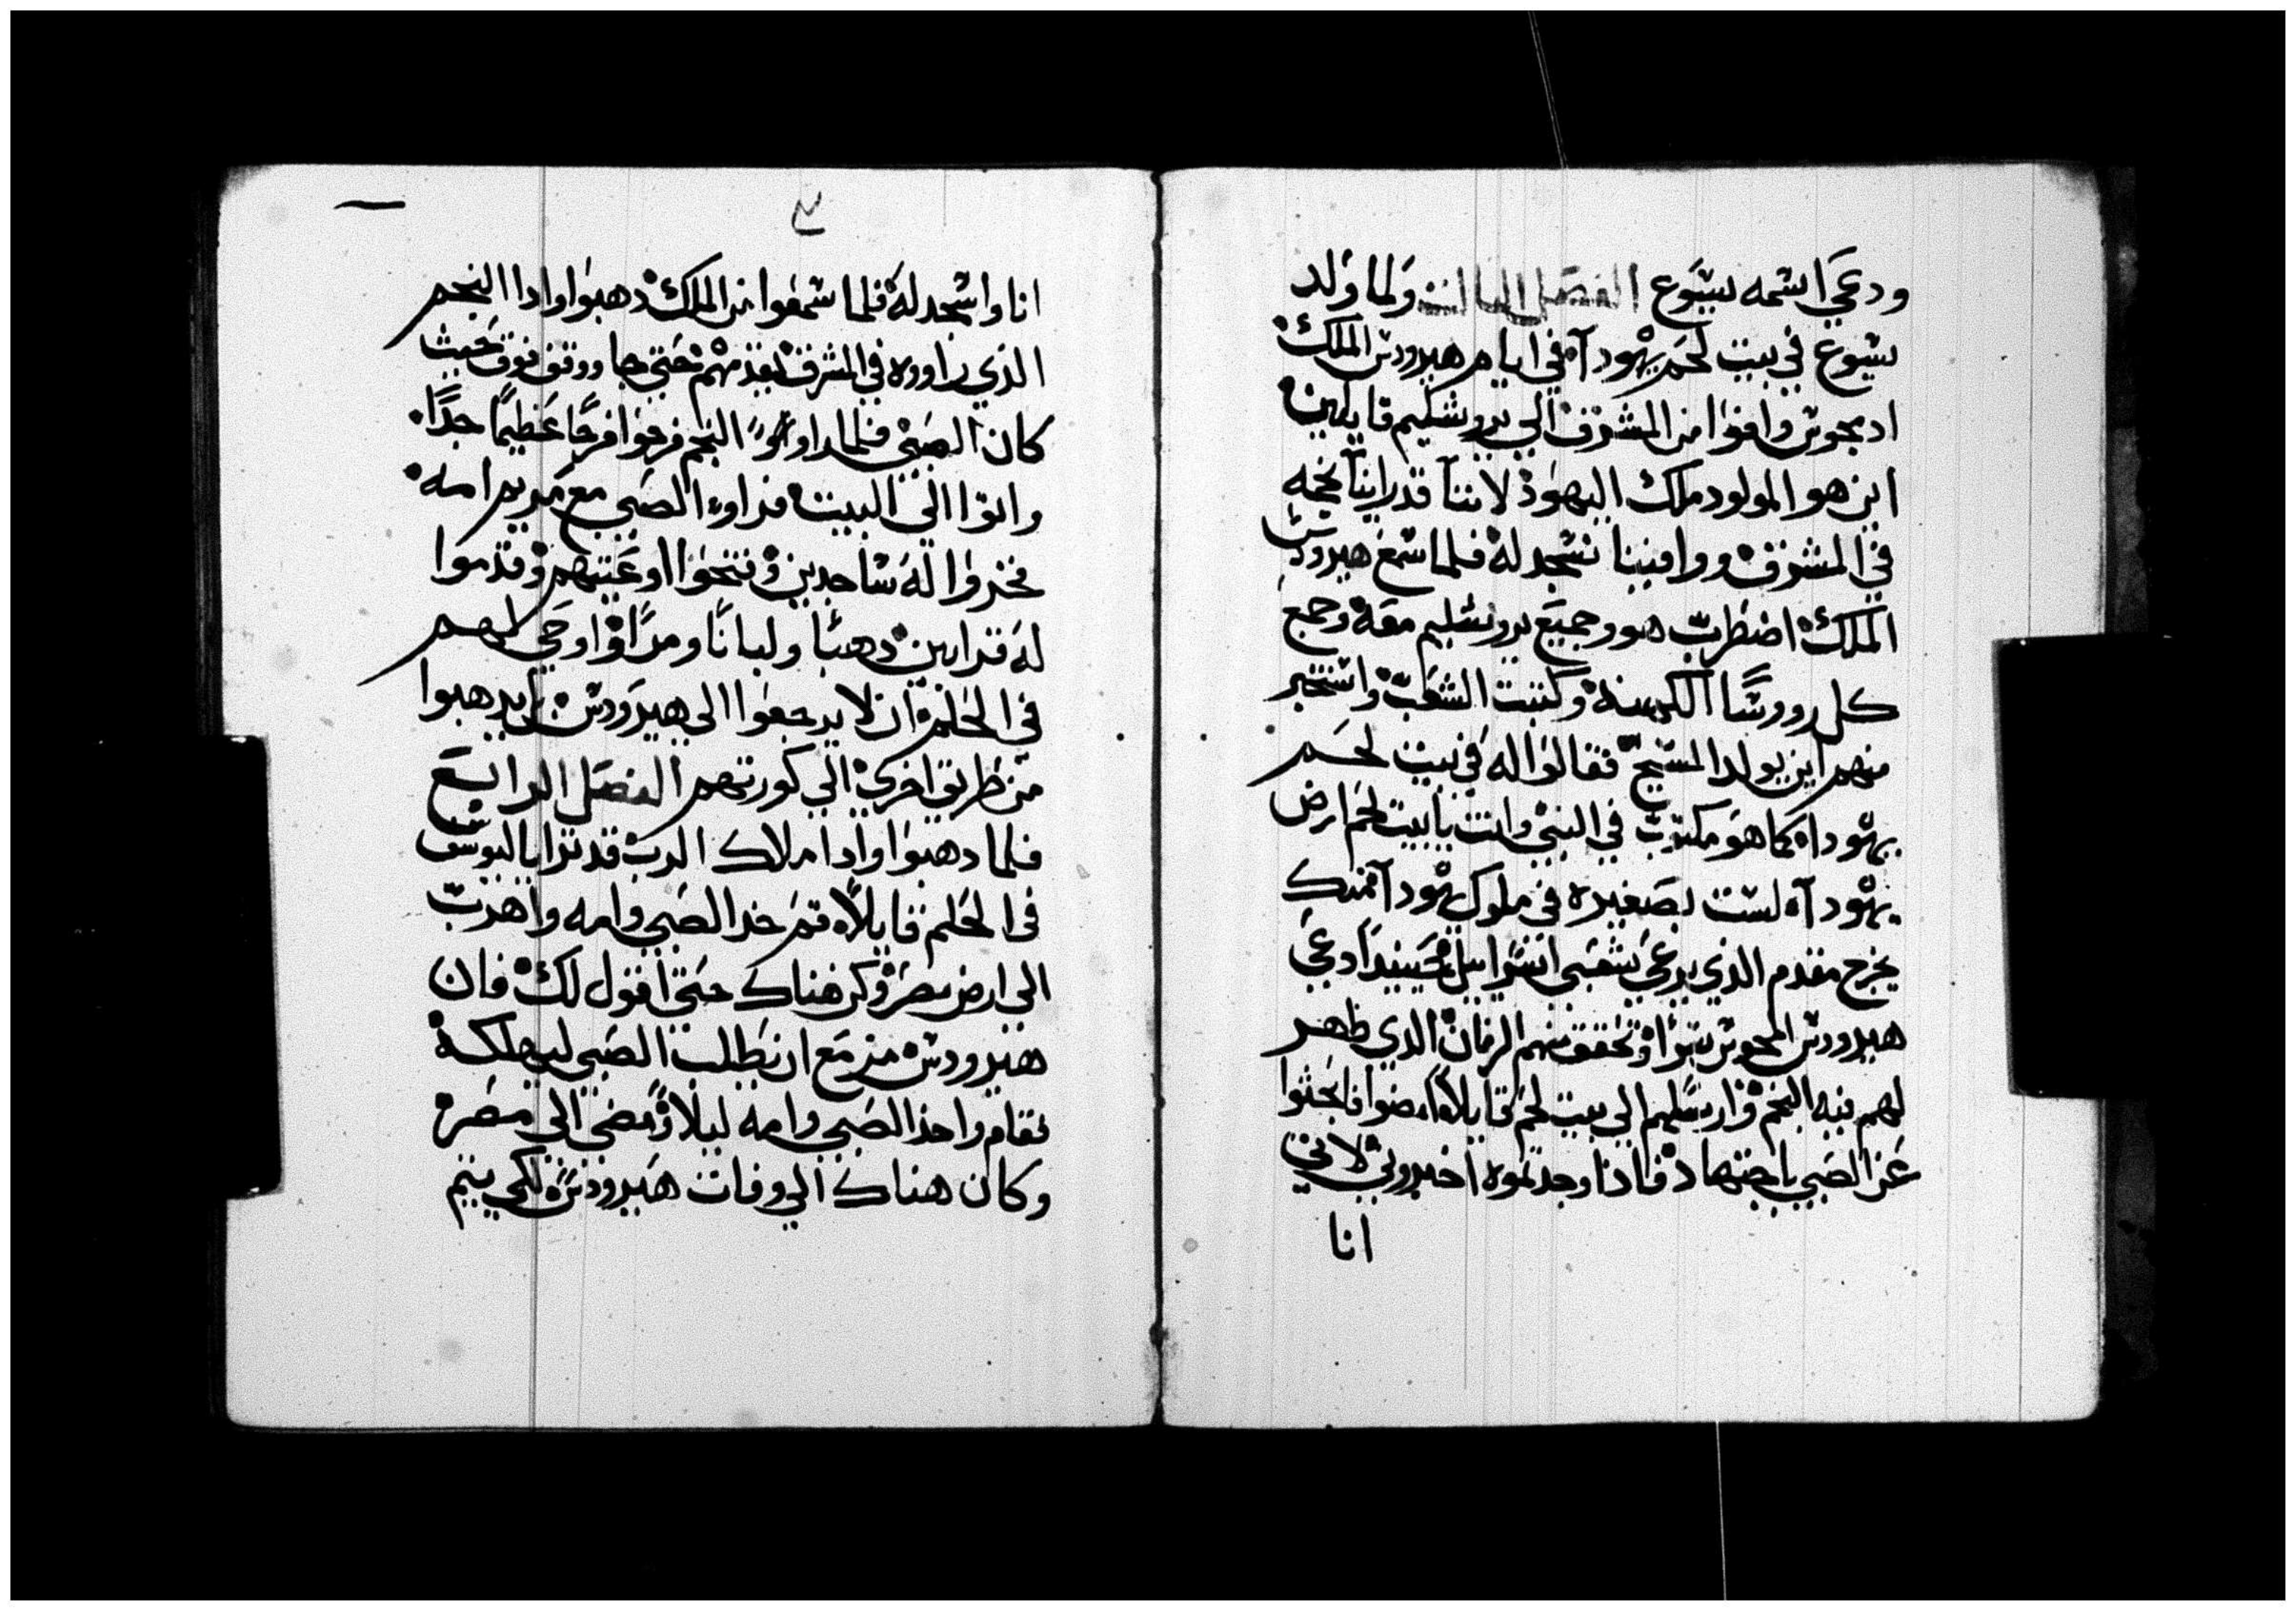 ودعي اسمه يسوع الفصل الثالث ولما ولد
يسوع في بيت لحم يهودآه في ايام هيرودس الملك
اد مجوس وافوا من المشرق الي يروشليم قايلين
اين هو المولود ملك اليهود لاننآ قد راينآ نجمه
في المشرق ووافينا نسجد له فلما سمع هيرودس
الملك اضطرب هو وجميع يروشليم معه وجمع
كل رووسآ الكهنه وكتبت الشعب واستخبر
منهم اين يولد المسيح فقالوا له في بيت لحم
يهوداه كما هو مكتوب في النبي وانت يا بيت لحم ارض
يهودآه لست بصغيره في ملوك يهودآ منك
يخرج مقدم الذي يرعي شعبي اسراييل حينيدا دعي
هيرودس المجوس سرا وتحقق منهم الزمان الدي ظهر
لهم فيه النجم وارسلهم الي بيت لحم قايلا امضوا فابحثوا
عن الصبي باجتهاد فاذا وجدتموه اخبروني لاني
انا
انا واسجد له فلما سمعوا من الملك دهبوا وادا النجم
الذي راووه في المشرق يقدمهم حتي جا ووقف فوق حيث
كان الصبي فلما راوو النجم فرحوا فرحا عظيما جدا
واتوا الي البيت فراوه الصبي مع مريم امه
فخروا له ساجدين وفتحوا اوعيتهم وقدموا
له قرابين دهبا ولبانا ومرا واوحي لهم
في الحلم ان لا يرجعوا الي هيرودس بل يدهبوا
من طريق اخري الي كورتهم الفصل الرابع
فلما دهبوا وادا ملاك الرب قد ترايا ليوسف
في الحلم قايلا قم خد الصبي وامه واهرب
الي ارض مصر وكن هناك حتي اقول لك فان
هيرودس مزمع ان يطلب الصبي ليهلكه
فقام واخذ الصبي وامه ليلا ومضي الي مصر
وكان هناك الي وفات هيرودس لكي يتم